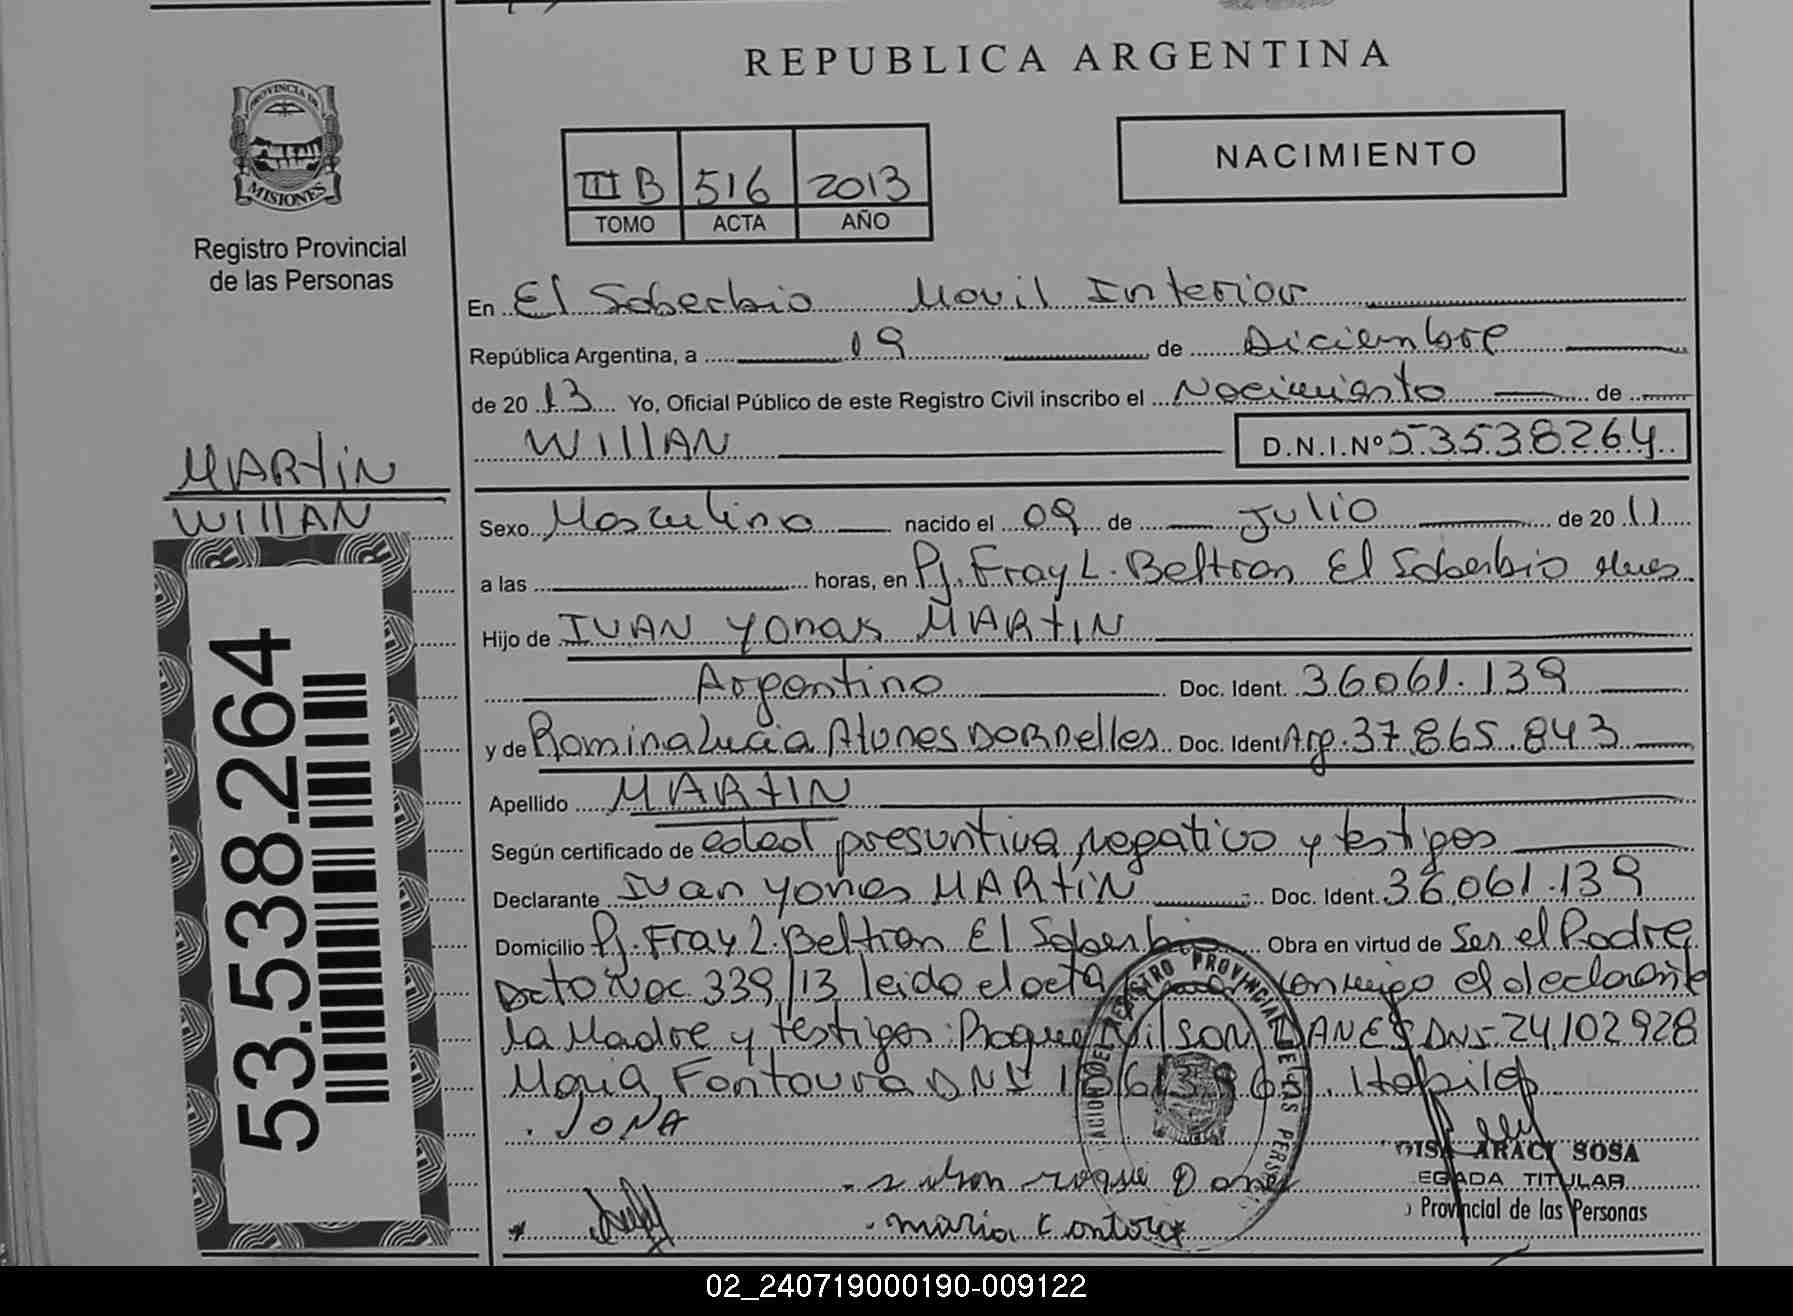 REPUBLICA ARGENTINA
PROVINCIA DE
MISIONES
Registro Provincial
de las Personas
III B 516 2013
TOMO ACTA AÑO
NACIMIENTO
En El Soberbio Movil Interior
República Argentina, a 19 de Diciembre
de 2013 Yo, Oficial Público de este Registro Civil inscribo el Nacimiento de
Willan D.N.I.Nº 53538264
MARTIN
Willan
53.538.264
Sexo Masculino nacido el 09 de Julio de 2011
a las horas, en Pj. Fray L. Beltran El Soberbio
Hijo de IVAN YONAS MARTIN
Argentino Doc. Ident. 36061.139
y de Romina Lucia Alunes DORNelles Doc. Ident Arg. 37.865.843
Apellido MARTIN
Según certificado de edad presuntiva, negativo y testigos
Declarante Ivan Yonas MARTIN Doc. Ident. 36.061.139
Domicilio Pj. Fray L. Beltran El Soberbio Obra en virtud de Ser el Padre
Dcto Nac 339/13 leido el acta conmigo el declarante
la Madre y testigos: Roque DANES DNI 24102928
Maria Fontoura DNI
REGISTRO PROVINCIAL DE LAS PERSONAS
JONA
ARACI SOSA
TITULAR
Provincial de las Personas
maria
02_240719000190-009122